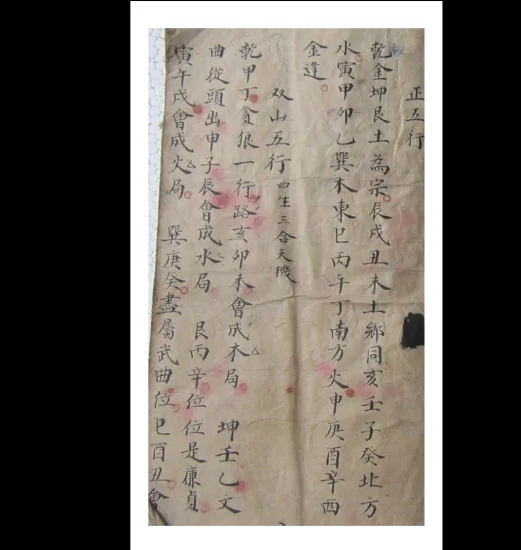 正五行
乾金坤艮土為宗辰戌丑未土鄉同亥壬子癸北方
水寅甲卯乙巽木東巳丙午丁南方火申庚酉辛西
金逢
双山五行 四生三合天機
乾甲丁貪狼一行路亥卯未會成木局 坤壬乙文
曲從頭出申子辰會成水局 艮丙辛位位是廉貞
寅午戌會成火局 巽庚癸盡屬武曲位巳酉丑會